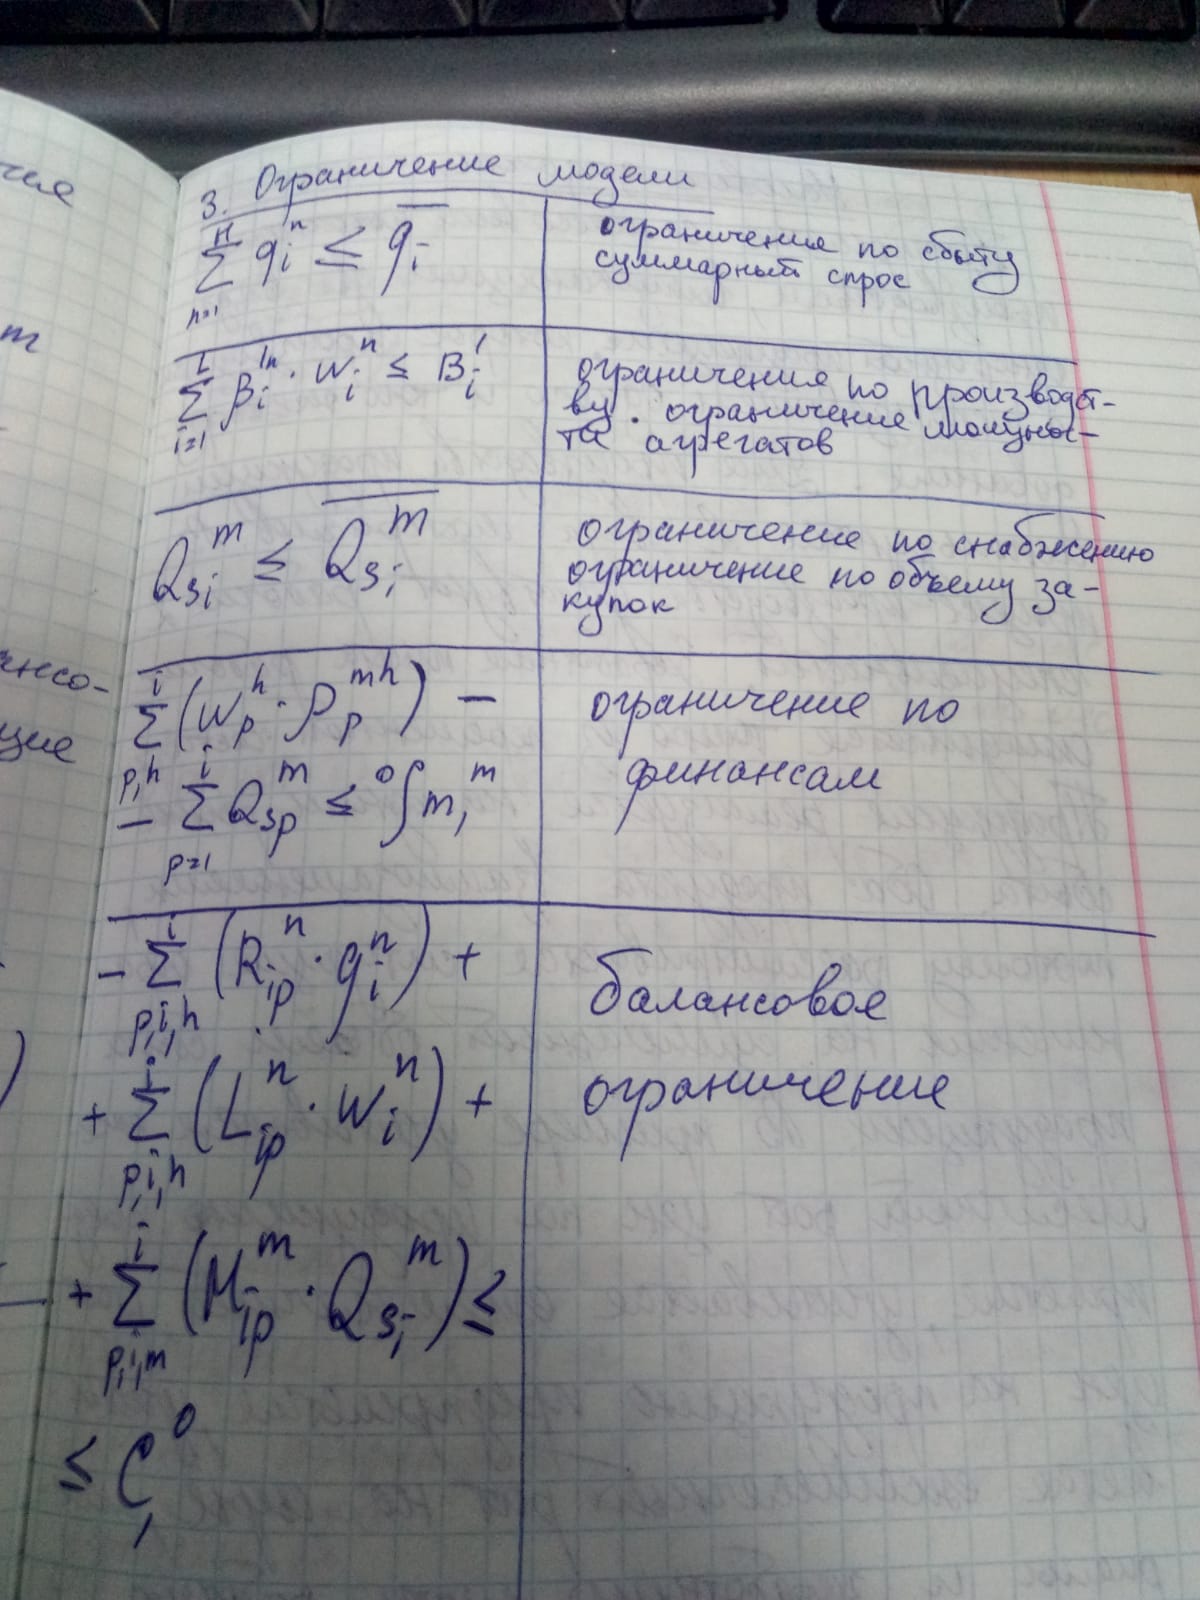 чия
m
ансо-
щие
3. Ограничение модели
∑_{n=1}^{N} q_i^n ≤ \overline{q_i}
ограничение по сбыту
суммарный спрос
∑_{i=1}^{L} β_i^{ln} · W_i^n ≤ B_i^l
ограничения по производст-
ву. ограничение мощнос-
ти агрегатов
Q_{s_i}^m ≤ \overline{Q_{s_i}^m}
ограничение по снабжению
ограничение по объему за-
купок
∑_{p,h}^{i} (W_p^h · ρ_p^{mh}) −
− ∑_{p=1}^{i} Q_{sp}^m ≤ ^0∫m_1^m
ограничение по
финансам
− ∑_{p,i,h}^{i} (R_{ip}^n · q_i^n) +
+ ∑_{p,i,h}^{i} (L_{ip}^n · W_i^n) +
+ ∑_{p,i,m}^{i} (M_{ip}^m · Q_{s_i}^m) ≤
≤ C_1^0
балансовое
ограничение